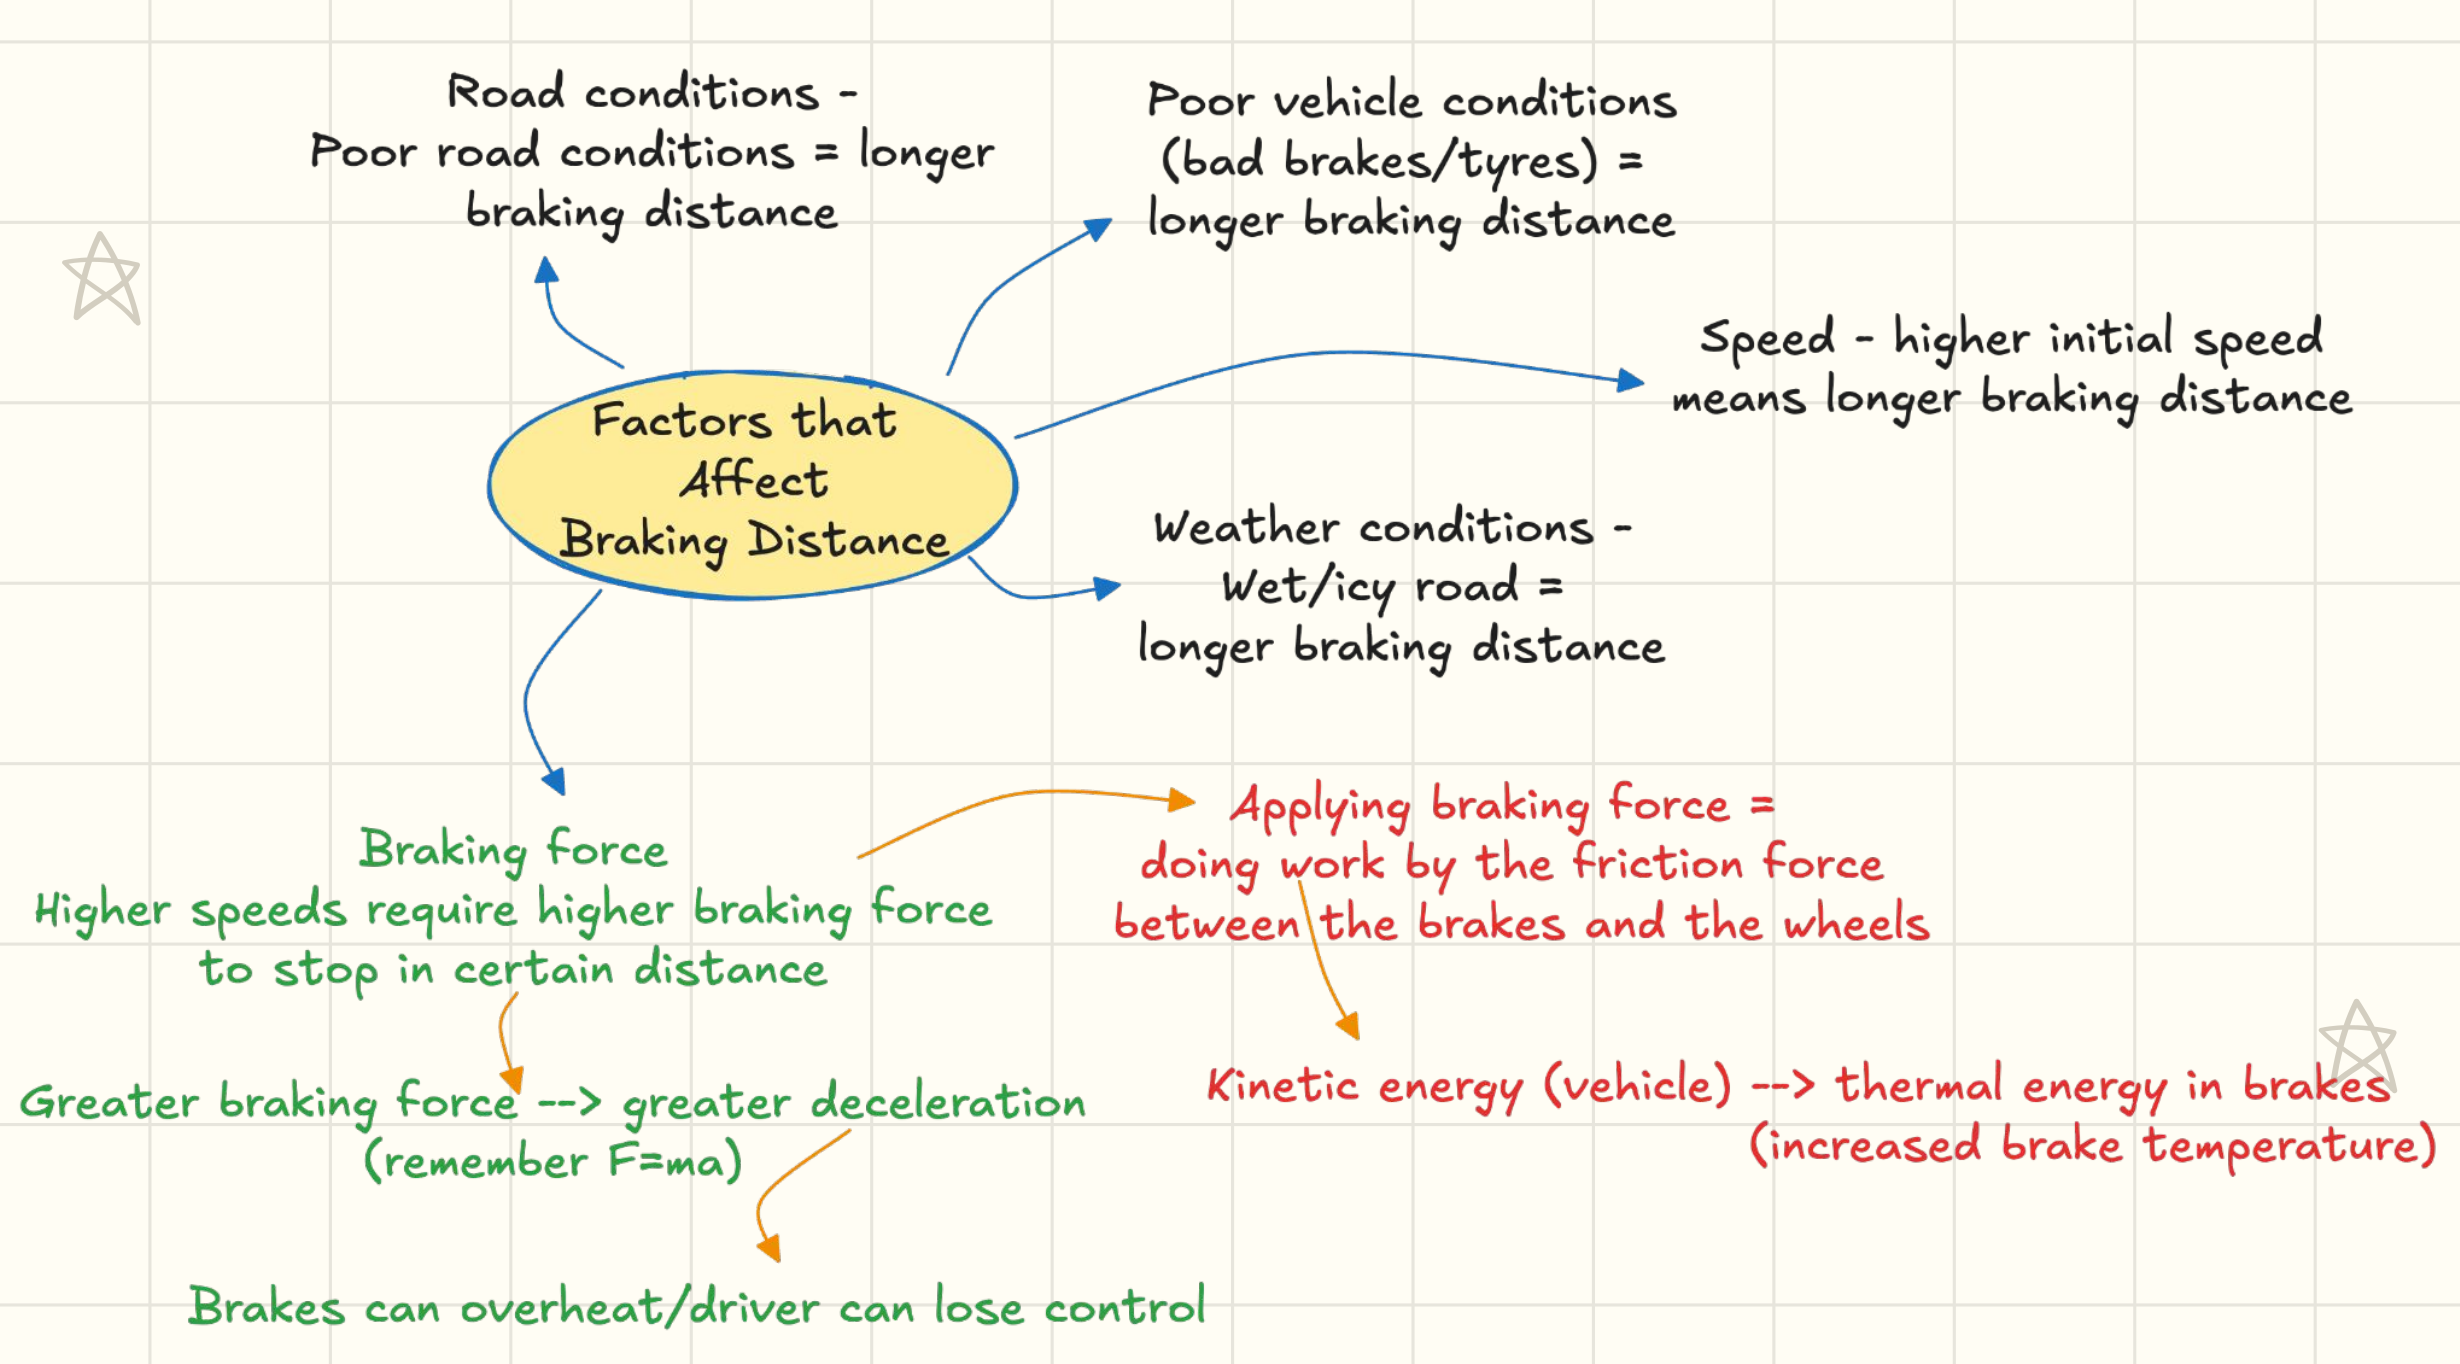 Road conditions -
Poor road conditions = longer
braking distance
Poor vehicle conditions
(bad brakes/tyres) =
longer braking distance
Speed - higher initial speed
means longer braking distance
Factors that
Affect
Braking Distance
Weather conditions -
Wet/icy road =
longer braking distance
Braking force
Higher speeds require higher braking force
to stop in certain distance
Applying braking force =
doing work by the friction force
between the brakes and the wheels
Greater braking force --> greater deceleration
(remember F=ma)
Kinetic energy (vehicle) --> thermal energy in brakes
(increased brake temperature)
Brakes can overheat/driver can lose control